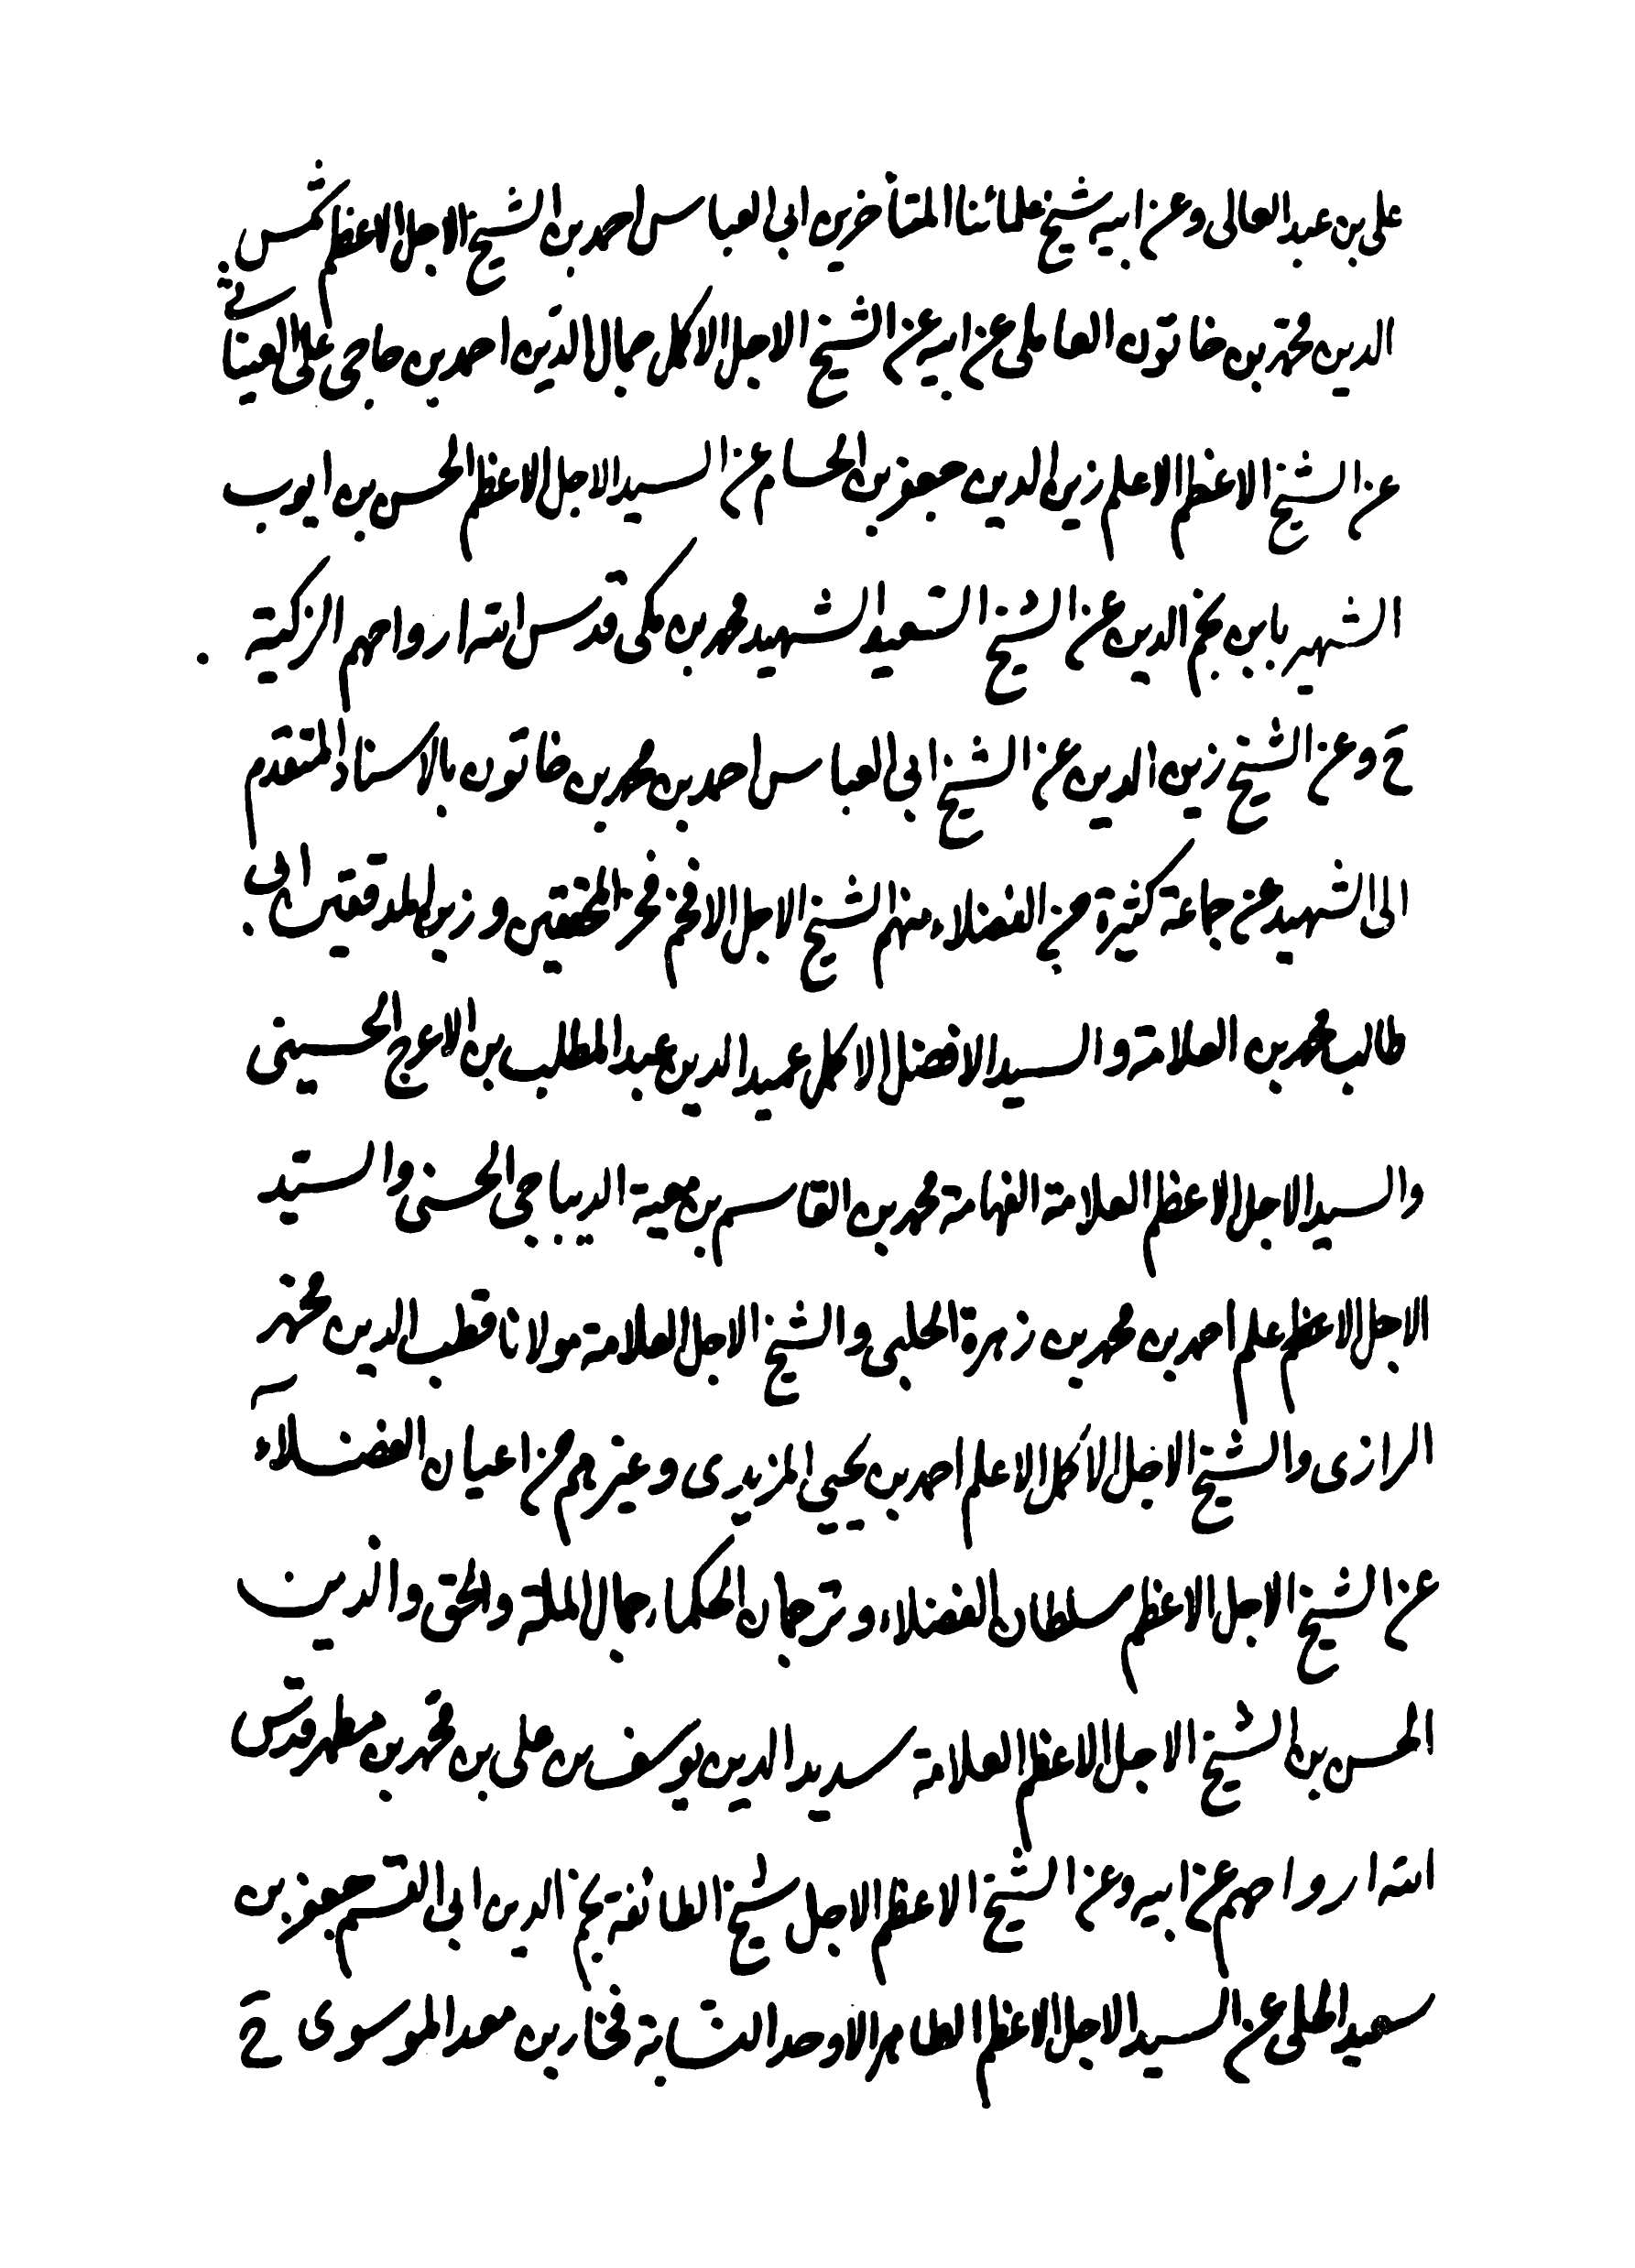 على بن عبد العالى وعن ابيه شيخ علمائنا المتأخرين ابى العباس احمد بن الشيخ الاجل الاعظم شمس
الدين محمد بن خاتون العاملى عن ابيه عن الشيخ الاجل الاكمل جمال الدين احمد بن حاجى على العيناثى
عن الشيخ الاعظم الاعلم زين الدين جعفر بن الحسام عن السيد الاجل الاعظم الحسن بن ايوب
الشهير بابن نجم الدين عن الشيخ السعيد الشهيد محمد بن مكى قدس الله ارواحهم الزكية .
ح وعن الشيخ زين الدين عن الشيخ ابى العباس احمد بن محمد بن خاتون بالاسناد المتقدم
الى الشهيد عن جماعة كثيرة من الفضلاء منهم الشيخ الاجل الافخم فخر المحققين وزين المدققين ابى
طالب محمد بن العلامة والسيد الافضل الاكمل عميد الدين عبد المطلب بن الاعرج الحسينى
والسيد الاجل الاعظم العلامة الفهامة محمد بن القاسم بن معية الديباجى الحسنى والسيد
الاجل الاعظم علم احمد بن محمد بن زهرة الحلبى والشيخ الاجل العلامة مولانا قطب الدين محمد
الرازى والشيخ الاجل الاكمل الاعلم احمد بن يحيى المزيدى وغيرهم من اعيان الفضلاء
عن الشيخ الاجل الاعظم سلطان الفضلاء وترجمان الحكماء جمال الملة والحق والدين
الحسن بن الشيخ الاجل الاعظم العلامة سديد الدين يوسف بن على بن محمد بن مطهر قدس
الله ارواحهم عن ابيه وعن الشيخ الاعظم الاجل شيخ الطائفة نجم الدين ابى القسم جعفر بن
سعيد الحلى عن السيد الاجل الاعظم الطاهر الاوحد النسابة فخار بن معد الموسوى ح